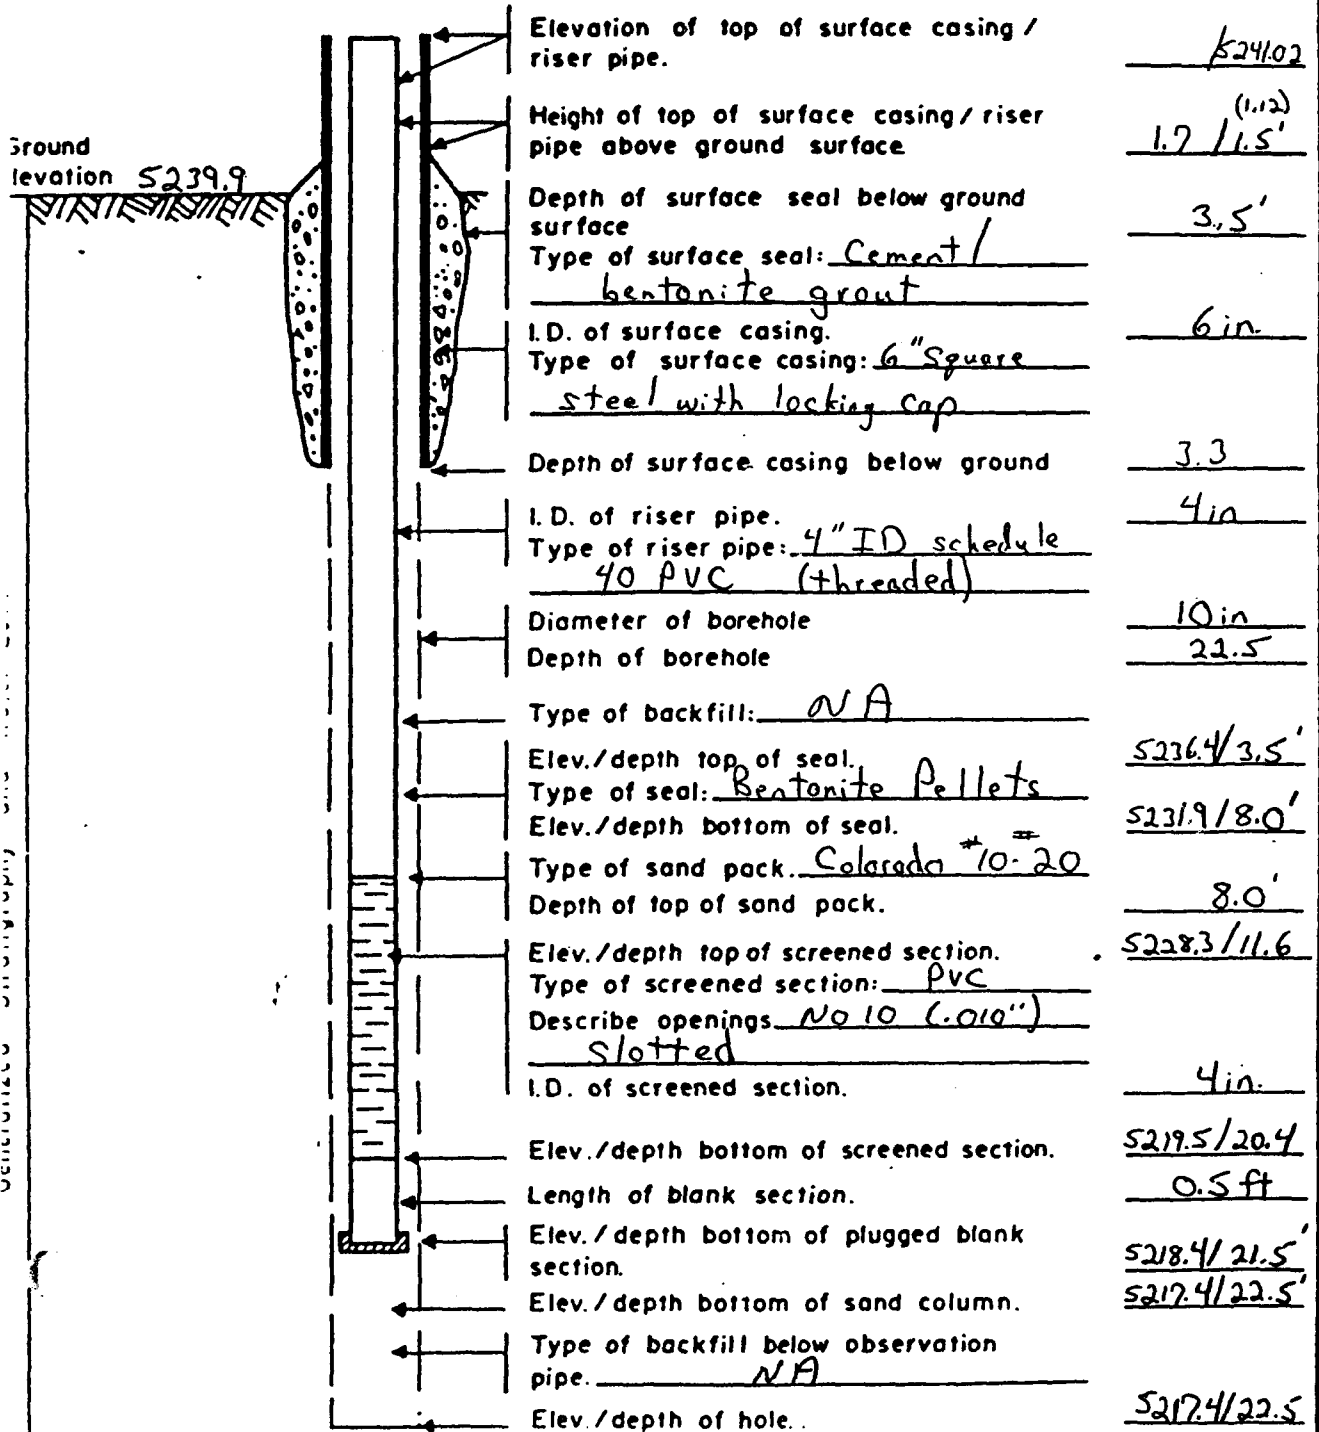 Elevation of top of surface casing /
riser pipe. /5241.02
Height of top of surface casing / riser (1.12)
pipe above ground surface 1.7 / 1.5'
Ground
levation 5239.9
Depth of surface seal below ground
surface 3.5'
Type of surface seal: Cement /
bentonite grout
I.D. of surface casing. 6 in.
Type of surface casing: 6" Square
steel with locking cap
Depth of surface casing below ground 3.3
I.D. of riser pipe. 4 in
Type of riser pipe: 4" ID schedule
40 PVC (threaded)
Diameter of borehole 10 in
Depth of borehole 22.5
Type of backfill: NA
Elev./depth top of seal. 5236.4/3.5'
Type of seal: Bentonite Pellets
Elev./depth bottom of seal. 5231.9/8.0'
Type of sand pack. Colorado #10-#20
Depth of top of sand pack. 8.0'
Elev./depth top of screened section. 5228.3/11.6
Type of screened section: PVC
Describe openings No 10 (.010")
Slotted
I.D. of screened section. 4 in.
Elev./depth bottom of screened section. 5219.5/20.4
Length of blank section. 0.5 ft
Elev./depth bottom of plugged blank
section. 5218.4/21.5'
Elev./depth bottom of sand column. 5217.4/22.5'
Type of backfill below observation
pipe. NA
Elev./depth of hole. 5217.4/22.5